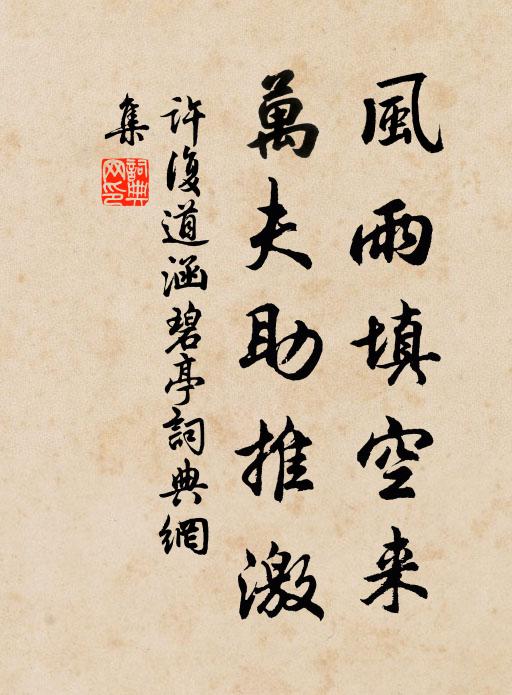 風雨填空来
萬夫助推激
許復道涵碧亭詞典網
集
詞典网印